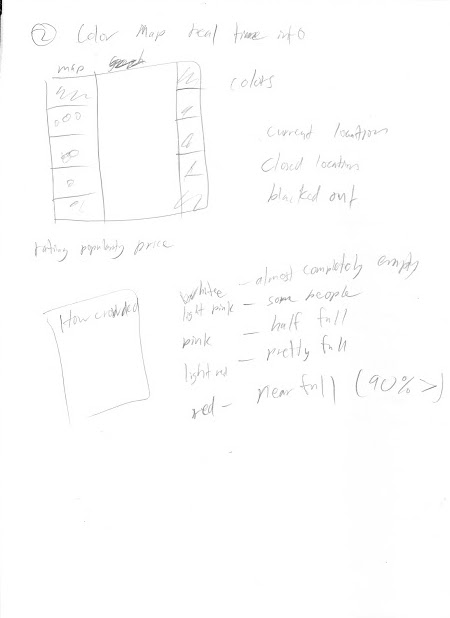 2 Color Map real time info
map
colors
current location
closed location
blacked out
rating popularity price
How crowded
white - almost completely empty
light pink - some people
pink - half full
light red - pretty full
red - near full (90%>)